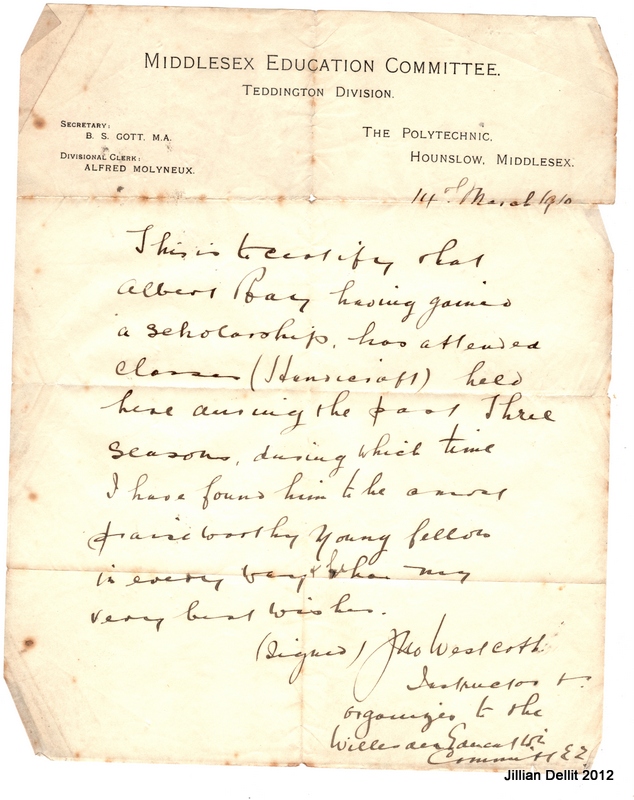 MIDDLESEX EDUCATION COMMITTEE.
TEDDINGTON DIVISION.
SECRETARY:
B. S. GOTT, M.A.
DIVISIONAL CLERK:
ALFRED MOLYNEUX.
THE POLYTECHNIC,
HOUNSLOW, MIDDLESEX.
14th March 1910
This is to certify that
Albert Ray having gained
a scholarship, has attended
classes (Handicraft) held
here during the past Three
seasons, during which time
I have found him to be a most
praiseworthy Young fellow
in every way & has my
very best wishes.
(signed) Jno Westcott
Instructor &
organizer to the
Willesden Education
Committee
Jillian Dellit 2012